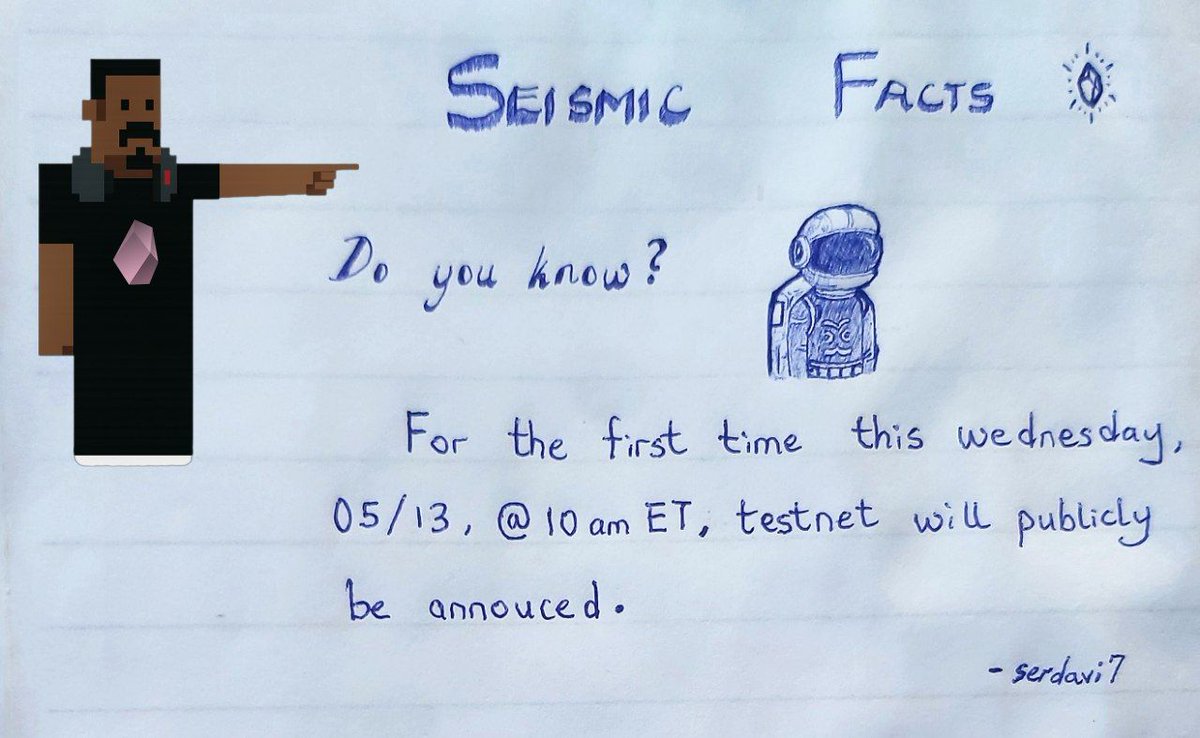 SEISMIC FACTS
Do you know?
For the first time this wednesday,
05/13, @ 10 am ET, testnet will publicly
be annouced.
- serdavi7